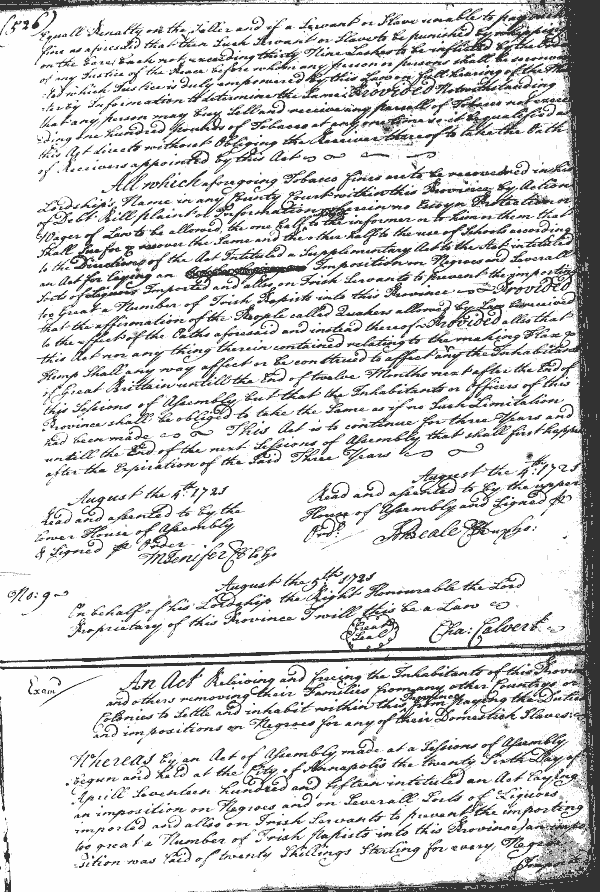 (526)
Equall Penalty on the Seller and if a Servant or Slave unable to pay
fine as aforesaid that then such Servant or Slave to be punished by whipping
on the Bare Back not exceeding thirty Nine Lashes to be inflicted by the
of any Justice of the Peace before whom any person or persons shall be
which Justice is duly impowered by this Law on full hearing of the
by Information to determine the same. Provided Notwithstanding
that any person may buy Sell and receive any parcell of Tobacco not
ding one hundred pounds of Tobacco at any one time so it be qualified as
this Act directs without Obliging the Receiver thereof to take the Oath
of Receivers appointed by this Act
All which aforegoing Tobacco fines are to be recovered in his
Lordship's Name in any County Court within this Province by Action
of Debt Bill plaint or Information wherein no Essoyn Protection or
Wager of Law to be allowed the one half to the informer or to him or them that
Shall Sue for & recover the Same and the other half to the use of Schools according
to the Directions of the Act Intituled a Supplementary Act to the Act intituled
an Act for laying an Imposition on Negroes and Severall
Sorts of Liquors Imported and allso on Irish Servants to prevent the importing
too Great a Number of Irish Papists into this Province Provided
that the affirmation of the People called Quakers allowed by Law be received
to the effect of the Oaths aforesaid and instead thereof Provided allso that
this Act nor any thing therein contained relating to the making Flax or
Hemp Shall any way affect or be construed to affect any the Inhabitants
of Great Brittain untill the End of twelve Months next after the End of
this Sessions of Assembly but that the Inhabitants or Officers of this
Province shall be obliged to take the Same as if no Such Limitation
had been made This Act is to continue for three Years and
untill the End of the next Sessions of Assembly that shall first happen
after the Expiration of the said Three Years
August the 4th 1721
Read and assented to by the
Lower House of Assembly
& Signed p Order
M Jenifer Cl Lo Ho
August the 4th 1721
Read and assented to by the upper
House of Assembly and Signed p
Ordr
J Beale Cl up Ho:
No: 9
August the 5th 1721
On behalf of his Lordship the Right Honourable the Lord
Proprietary of this Province I will this be a Law
Great Seal
Cha: Calvert
Examd
An Act Relieving and freeing the Inhabitants of this Province
and others removing their Families from any other Country or
Colonies to Settle and inhabit within this Province from paying the Duties
and impositions on Negroes for any of their Domestick Slaves
Whereas by an Act of Assembly made at a Sessions of Assembly
begun and held at the City of Annapolis the twenty Sixth Day of
Aprill Seventeen hundred and fifteen intituled an Act laying
an imposition on Negroes and on Severall Sorts of Liquors
imported and allso on Irish Servants to prevent the importing
too great a Number of Irish Papists into this Province an impo
sition was laid of twenty Shillings Sterling for every Negroe